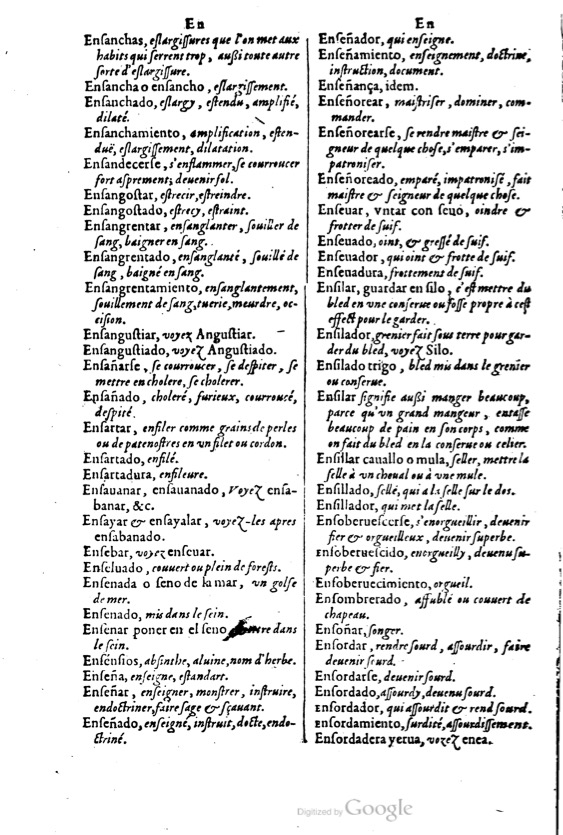 En
Enſanchas, eſlargiſſures que l'on met aux
habits qui ſerrent trop, außi toute autre
ſorte d'eſlargiſſure.
Enſancha o enſancho, eſlargiſſement.
Enſanchado, eſlargy, eſtendu, amplifié,
dilaté.
Enſanchamiento, amplification, eſten-
duë, eſlargiſſement, dilatation.
Enſandecerſe, s'enflammer, ſe courroucer
fort aſprement; deuenir fol.
Enſangoſtar, eſtrecir, eſtreindre.
Enſangoſtado, eſtrecy, eſtraint.
Enſangrentar, enſanglanter, ſouiller de
ſang, baigner en ſang.
Enſangrentado, enſanglanté, ſouillé de
ſang, baigné en ſang.
Enſangrentamiento, enſanglantement,
ſouillement de ſang, tuerie, meurdre, oc-
ciſion.
Enſanguſtiar, voyez Anguſtiar.
Enſanguſtiado, voyez Anguſtiado.
Enſañarſe, ſe courroucer, ſe deſpiter, ſe
mettre en cholere, ſe cholerer.
Enſañado, choleré, furieux, courroucé,
deſpité.
Enſartar, enfiler comme grains de perles
ou de patenoſtres en vn filet ou cordon.
Enſartado, enfilé.
Enſartadura, enfileure.
Enſauanar, enſauanado, Voyez enſa-
banar, &c.
Enſayar & enſayalar, voyez-les apres
enſabanado.
Enſebar, voyez enſeuar.
Enſeluado, couuert ou plein de foreſts.
Enſenada o ſeno de la mar, vn golfe
de mer.
Enſenado, mis dans le ſein.
Enſenar poner en el ſeno, dans
le ſein.
Enſénſios, abſinthe, aluine, nom d'herbe.
Enſeña, enſeigne, eſtandart.
Enſeñar, enſeigner, monſtrer, inſtruire,
endoctriner, faire ſage & ſçauant.
Enſeñado, enſeigné, inſtruit, docte, endo-
ctriné.
En
Enſeñador, qui enſeigne.
Enſeñamiento, enſeignement, doctrine,
inſtruction, document.
Enſeñança, idem.
Enſeñorear, maiſtriſer, dominer, com-
mander.
Enſeñorearſe, ſe rendre maiſtre & ſei-
gneur de quelque choſe, s'emparer, s'im-
patroniſer.
Enſeñoreado, emparé, impatroniſé, fait
maiſtre & ſeigneur de quelque choſe.
Enſeuar, vntar con ſeuo, oindre &
frotter de ſuif.
Enſeuado, oint, & greſſé de ſuif.
Enſeuador, qui oint & frotte de ſuif.
Enſeuadura, frottement de ſuif.
Enſilar, guardar en ſilo, c'eſt mettre du
bled en vne conſerue ou foſſe propre à ceſt
effect pour le garder.
Enſilador, grenier fait ſous terre pour gar-
der du bled, voyez Silo.
Enſilado trigo, bled mis dans le grenier
ou conſerue.
Enſilar ſignifie außi manger beaucoup,
parce qu'vn grand mangeur, entaſſe
beaucoup de pain en ſon corps, comme
on fait du bled en la conſerue ou celier.
Enſillar cauallo o mula, ſeller, mettre la
ſelle à vn cheual ou à vne mule.
Enſillado, ſellé, qui a la ſelle ſur le dos.
Enſillador, qui met la ſelle.
Enſoberueſcerſe, s'enorgueillir, deuenir
fier & orgueilleux, deuenir ſuperbe.
Enſoberueſcido, enorgueilly, deuenu ſu-
perbe & fier.
Enſoberuecimiento, orgueil.
Enſombrerado, affublé ou couuert de
chapeau.
Enſoñar, ſonger.
Enſordar, rendre ſourd, aſſourdir, faire
deuenir ſourd.
Enſordarſe, deuenir ſourd.
Enſordado, aſſourdy, deuenu ſourd.
Enſordador, qui aſſourdit & rend ſourd.
Enſordamiento, ſurdité, aſſourdiſſement.
Enſordadera yerua, voyez enea.
Digitized by Google